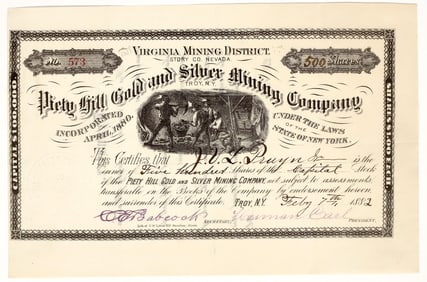 VIRGINIA MINING DISTRICT.
STORY CO. NEVADA
No. 573
500 Shares
Piety Hill Gold and Silver Mining Company
TROY, N.Y.
INCORPORATED
APRIL, 1880.
UNDER THE LAWS
OF THE
STATE OF NEW YORK.
This Certifies that J.V.L. Pruyn is the
owner of Five hundred Shares of the Capital Stock
of the PIETY HILL GOLD AND SILVER MINING COMPANY, not subject to assessments,
transferable on the Books of the Company by endorsement hereon
and surrender of this Certificate. TROY, N.Y. Feby 7th 1882
Babcock SECRETARY. PRESIDENT.